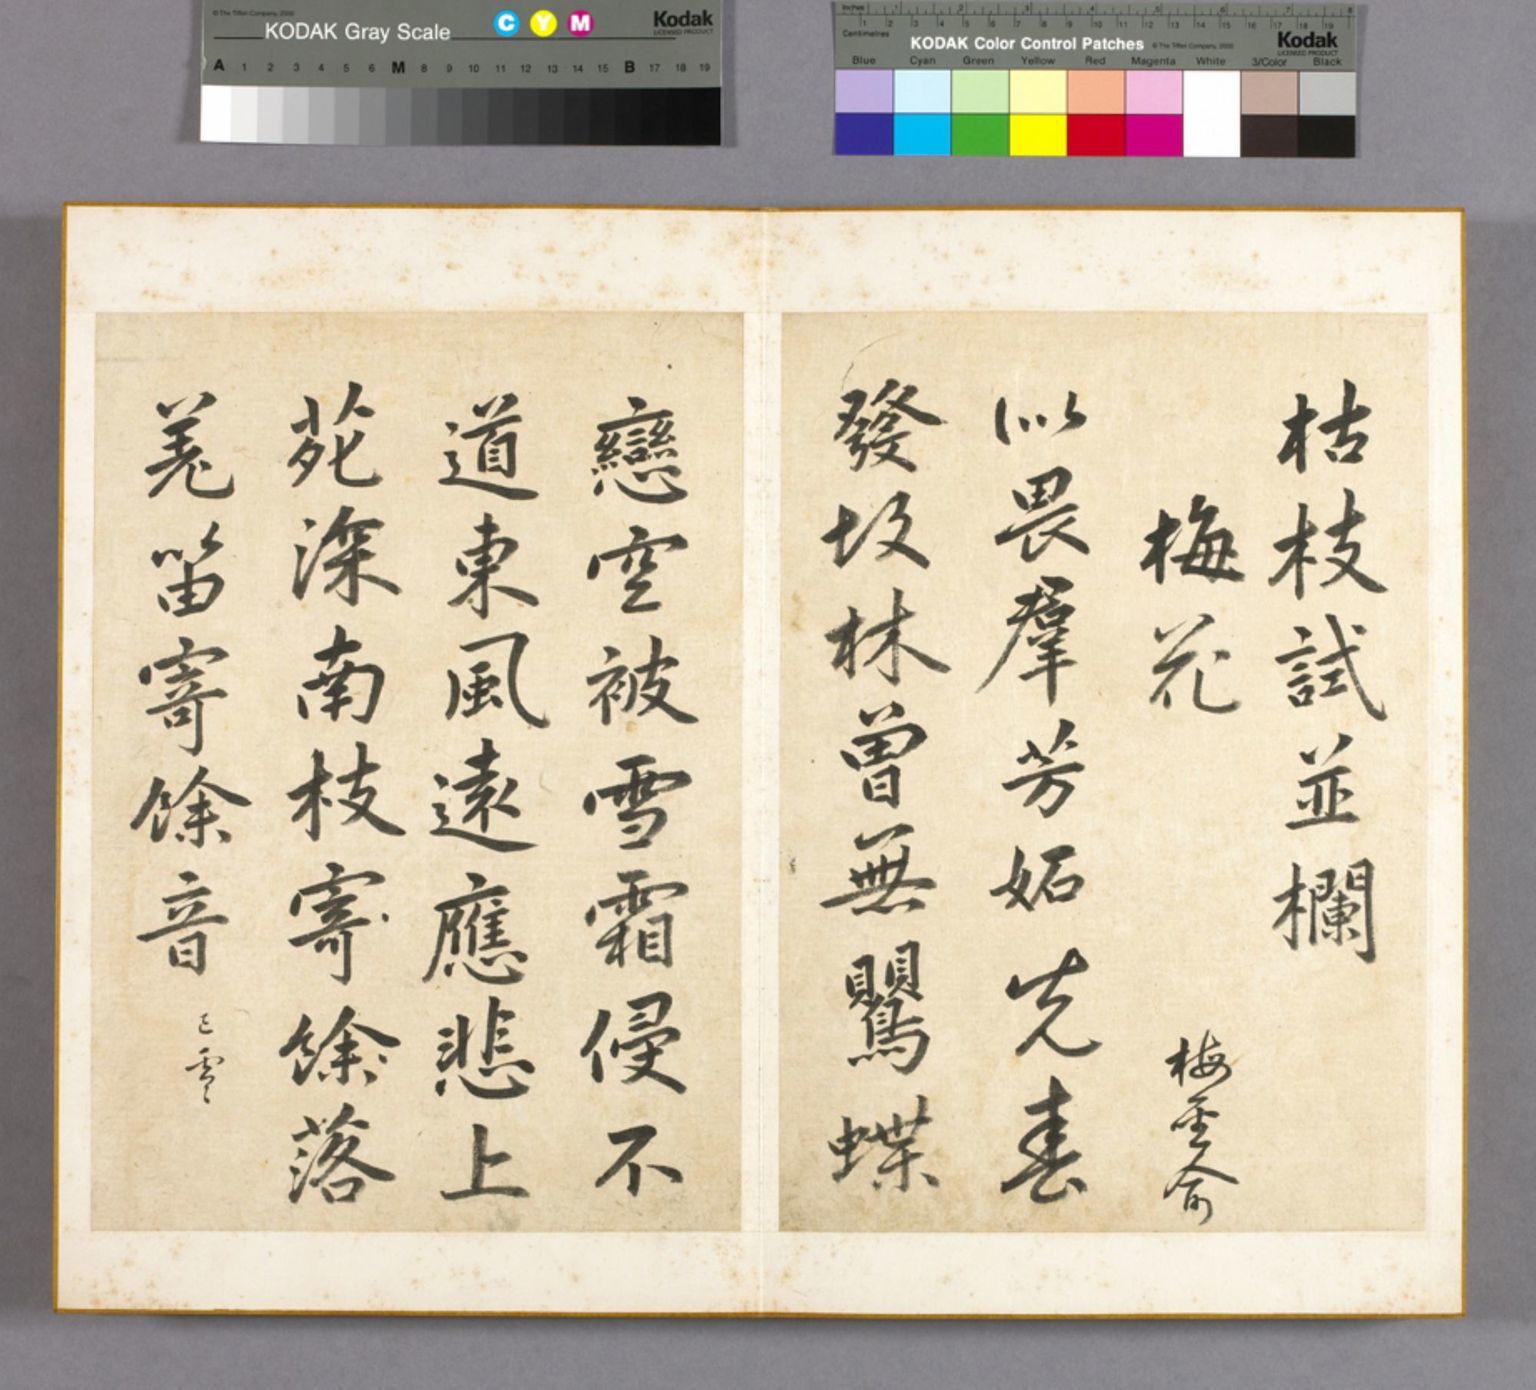 © The Tiffen Company, 2000
KODAK Gray Scale
C Y M
Kodak
LICENSED PRODUCT
A 1 2 3 4 5 6 M 8 9 10 11 12 13 14 15 B 17 18 19
Inches 1 2 3 4 5 6 7 8
Centimetres 1 2 3 4 5 6 7 8 9 10 11 12 13 14 15 16 17 18 19
KODAK Color Control Patches
© The Tiffen Company, 2000
Kodak
LICENSED PRODUCT
Blue Cyan Green Yellow Red Magenta White 3/Color Black
枯枝試並欄
梅花 梅聖俞
似畏羣芳妬先春
發故林曾無鸎蝶
戀空被雪霜侵不
道東風遠應悲上
苑深南枝寄餘落
羌笛寄餘音 已零